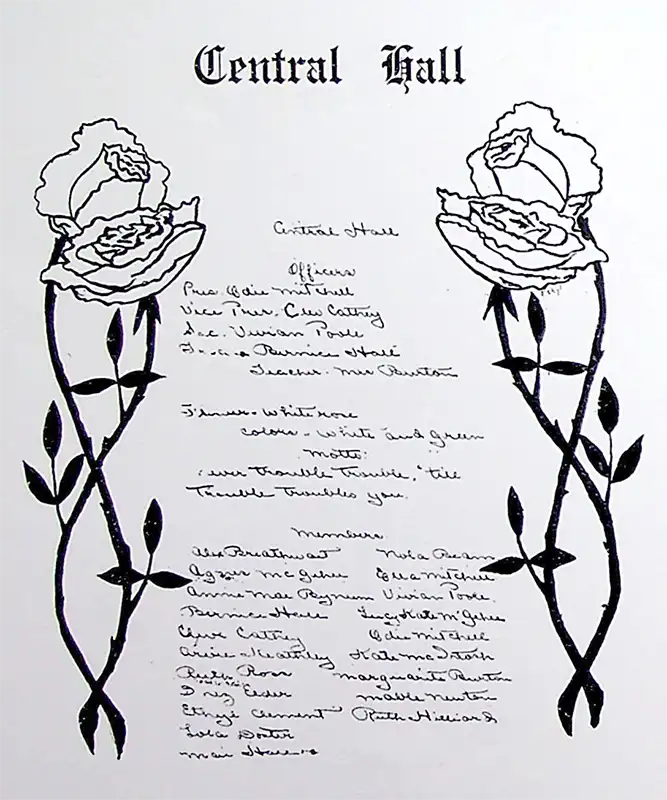 Central Hall
Central Hall
Officers
Pres. Odie Mitchell
Vice Pres. Cleo Cathey
Sec. Vivian Poole
Bernice Hall
Teacher - Mrs Burton
Flower - White rose
colors - White and Green
Motto:
never trouble Trouble, 'till
Trouble Troubles you.
Members
Alex Breathwait Nola Beam
McGehee Ella Mitchell
Annie Mae Bynum Vivian Poole.
Bernice Hall Lucy Kate McGehee
Cathey Odie Mitchell
Keathley Kate McIntosh
Ruth Ross Marguarite Burton
Inez Elder Mable Newton
Ethyl Clement Ruth Hilliard
Lola Doster
Hall